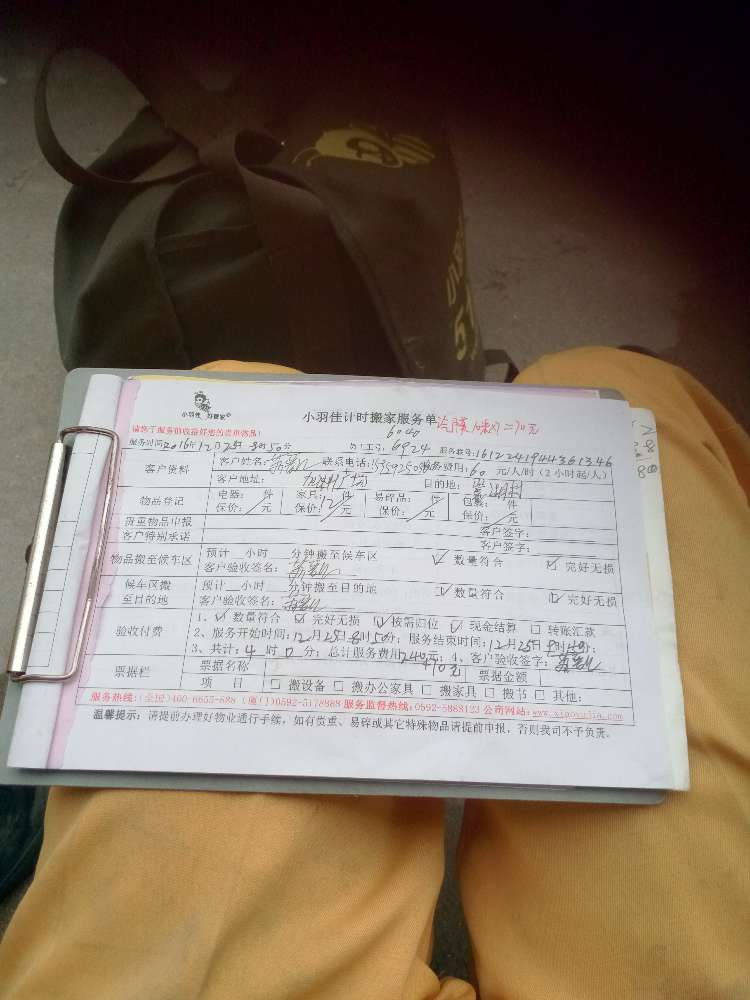 小羽佳 好管家
小羽佳计时搬家服务单
请您于服务前收益好您的贵重物品!
6040
服务时间2016年12月25日8时50分 员工工号: 6924 服务联号:1612241944361346
客户资料 客户姓名: 联系电话: 服务费用:60元/人/时(2小时起/人)
客户地址: 目的地:
物品登记 电器: 件 家具: 件 易碎品: 件 包裹: 件
保价: 元 保价: 元 保价: 元 保价: 元
贵重物品申报 客户签字:
客户特别承诺 客户签字:
物品搬至候车区 预计 小时 分钟搬至候车区 数量符合 完好无损
客户验收签名:
候车区搬 预计 小时 分钟搬至目的地 数量符合 完好无损
至目的地 客户验收签名:
验收付费 1、 数量符合 完好无损 按需归位 现金结算 转账汇款
2、服务开始时间:12月25日8时50分; 服务结束时间:12月25日 时 分;
3、共计:4时0分; 总计服务费用240元; 4、客户验收签字:
+10元
票据栏 票据名称 票据金额
项 目 搬设备 搬办公家具 搬家具 搬书 其他:
服务热线:(全国)400-6655-888 (厦门)0592-5178888 服务监督热线:0592-5888123 公司网站:www.xiaoyujia.com
温馨提示: 请提前办理好物业通行手续, 如有贵重、易碎或其它特殊物品请提前申报, 否则我司不予负责。